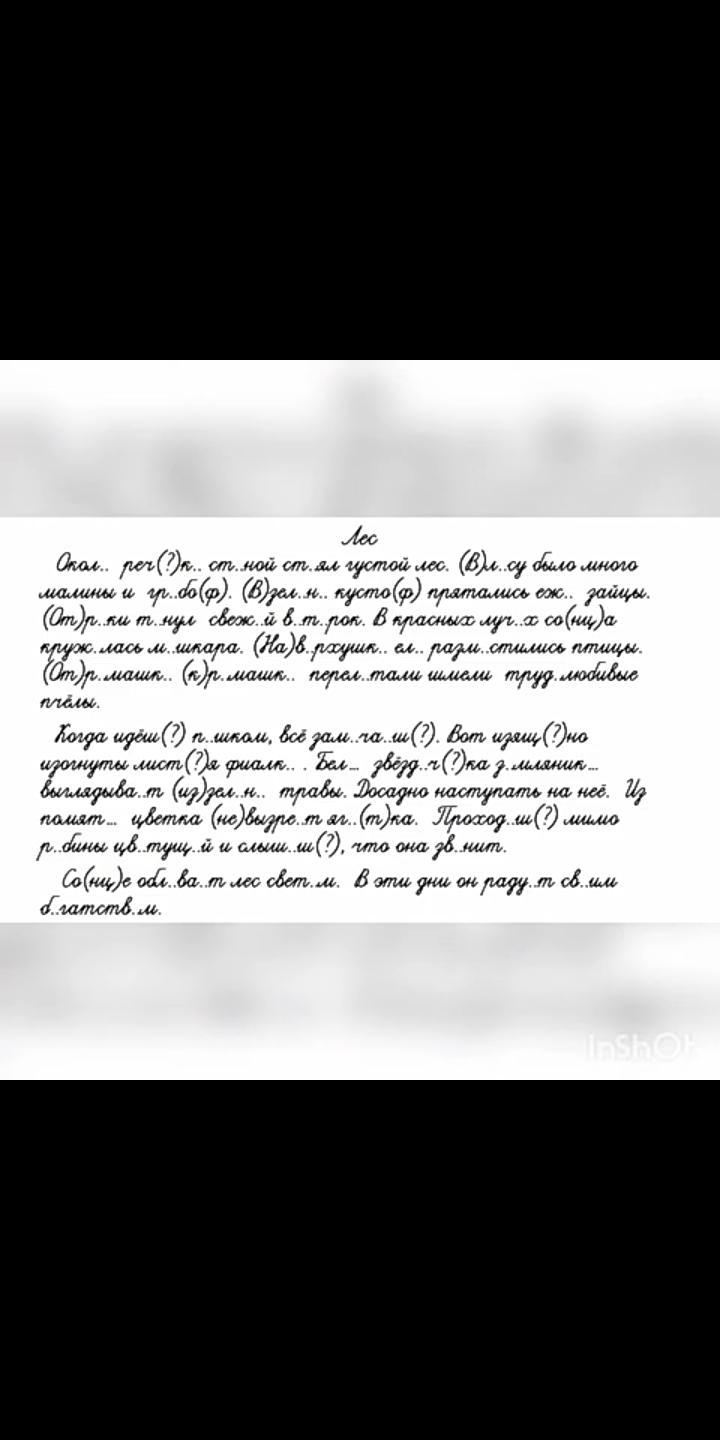 Лес
Окол.. реч(?)к.. ст..ной ст..ял густой лес. (В)л..су было много
малины и гр..бо(ф). (В)зел..н.. кусто(ф) прятались еж.. зайцы.
(От)р..ки т..нул свеж..й в..т..рок. В красных луч..х со(нц)а
круж..лась м..шкара. (На)в..рхушк.. ел.. разм..стились птицы.
(От)р..машк.. (к)р..машк.. перел..тали шмели труд..любивые
пчёлы.
Когда идёш(?) п..шком, всё зам..ча..ш(?). Вот изящ(?)но
изогнуты лист(?)я фиалк.. . Бел... звёзд..ч(?)ка з..мляник...
выглядыва..т (из)зел..н.. травы. Досадно наступать на неё. Из
помят... цветка (не)вызре..т яг..(т)ка. Проход..ш(?) мимо
р..бины цв..тущ..й и слыш..ш(?), что она зв..нит.
Со(нц)е обл..ва..т лес свет..м. В эти дни он раду..т св..им
б..гатств..м.
InShOt